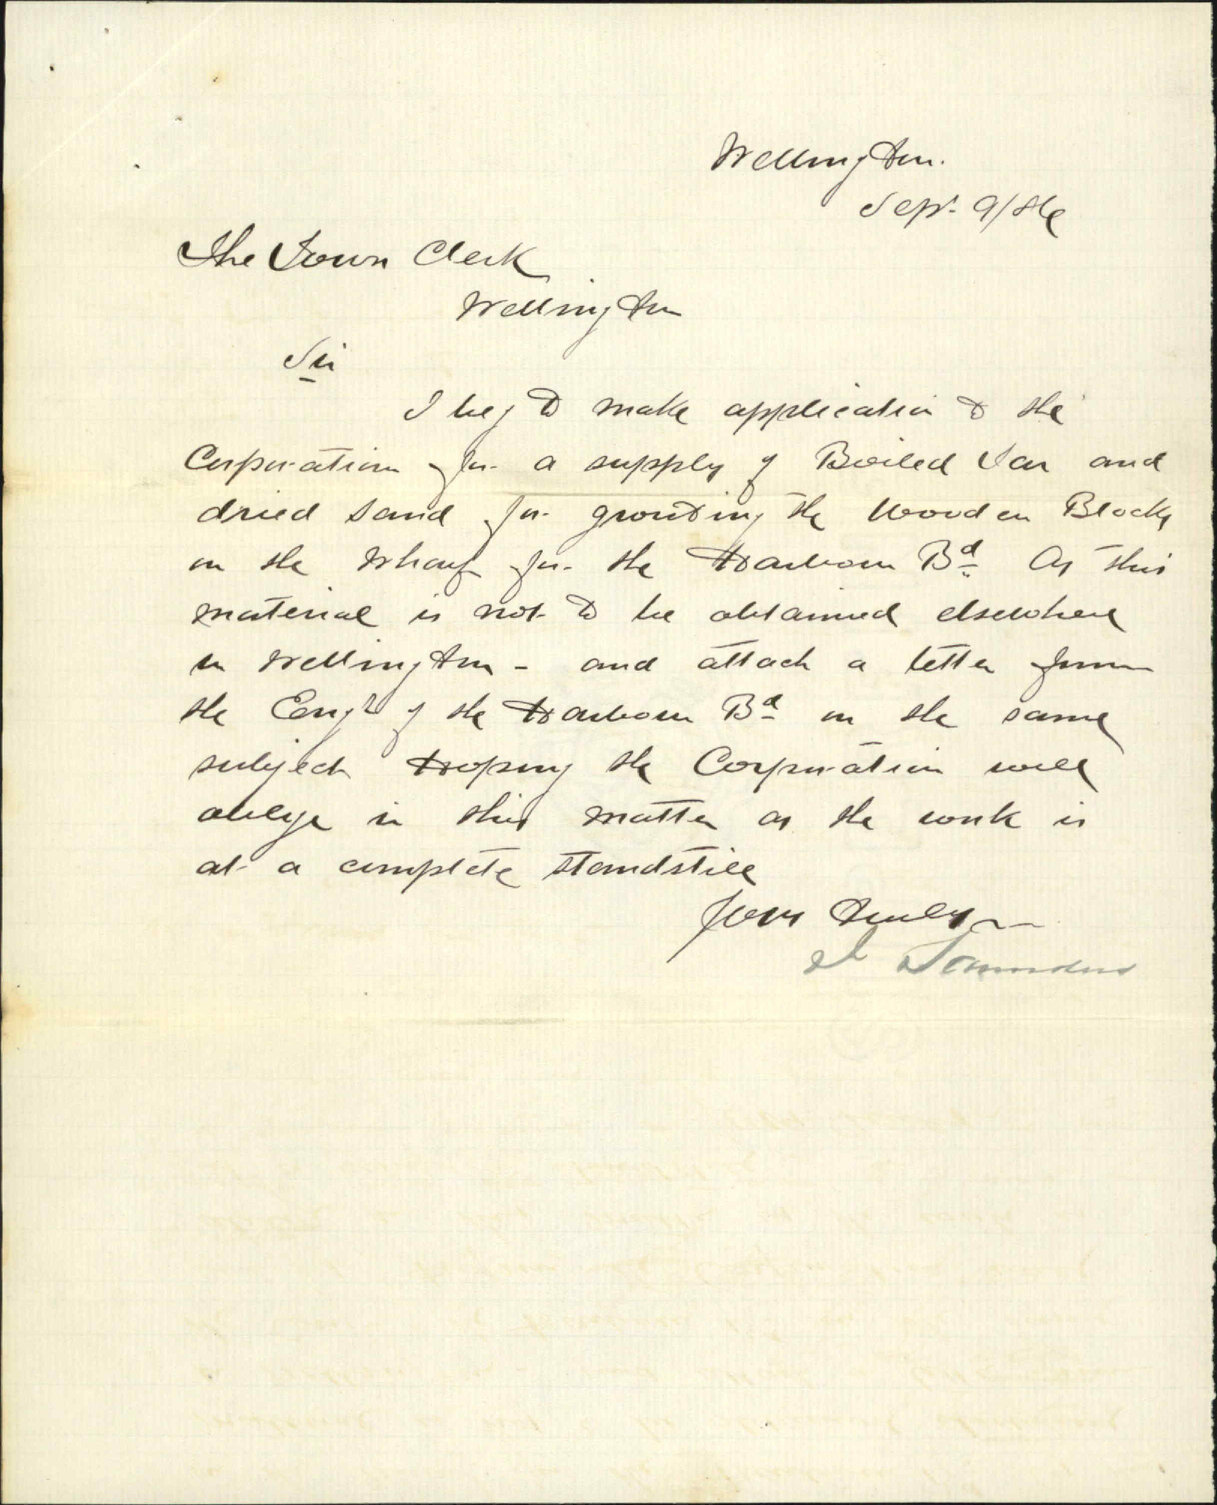 Wellington.
Sept. 9/86
The Town Clerk
Wellington
Sir
I beg to make application to the
Corporation for a supply of Boiled Tar and
dried sand for grouting the Wooden Blocks
on the Wharf for the Harbour Bd. As this
material is not to be obtained elsewhere
in Wellington - and attach a letter from
the Engr of the Harbour Bd on the same
subject Hoping the Corporation will
oblige in this matter as the work is
at a complete standstill
Yours Truly
J Saunders